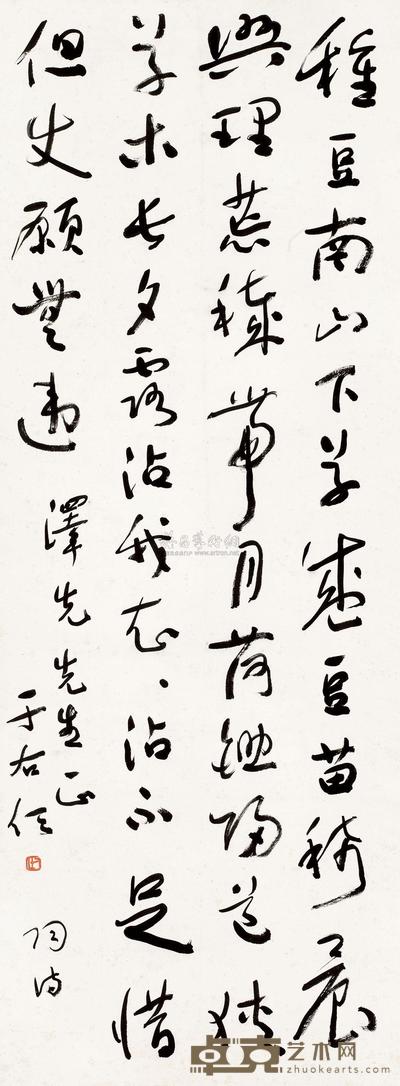 種豆南山下草盛豆苗稀晨
興理荒穢帶月荷鋤歸道狹
草木長夕露沾我衣、沾不足惜
但使願無違 澤先先生正
于右任
陶詩
雅昌藝術網
www.artron.net
卓克艺术网
zhuokearts.com